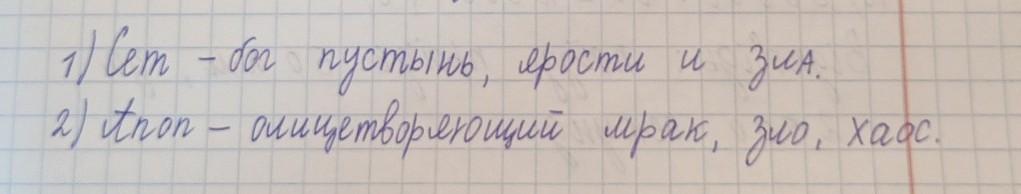 1) Сет - бог пустынь, ярости и зла.
2) Апоп - олицетворяющий мрак, зло, хаос.